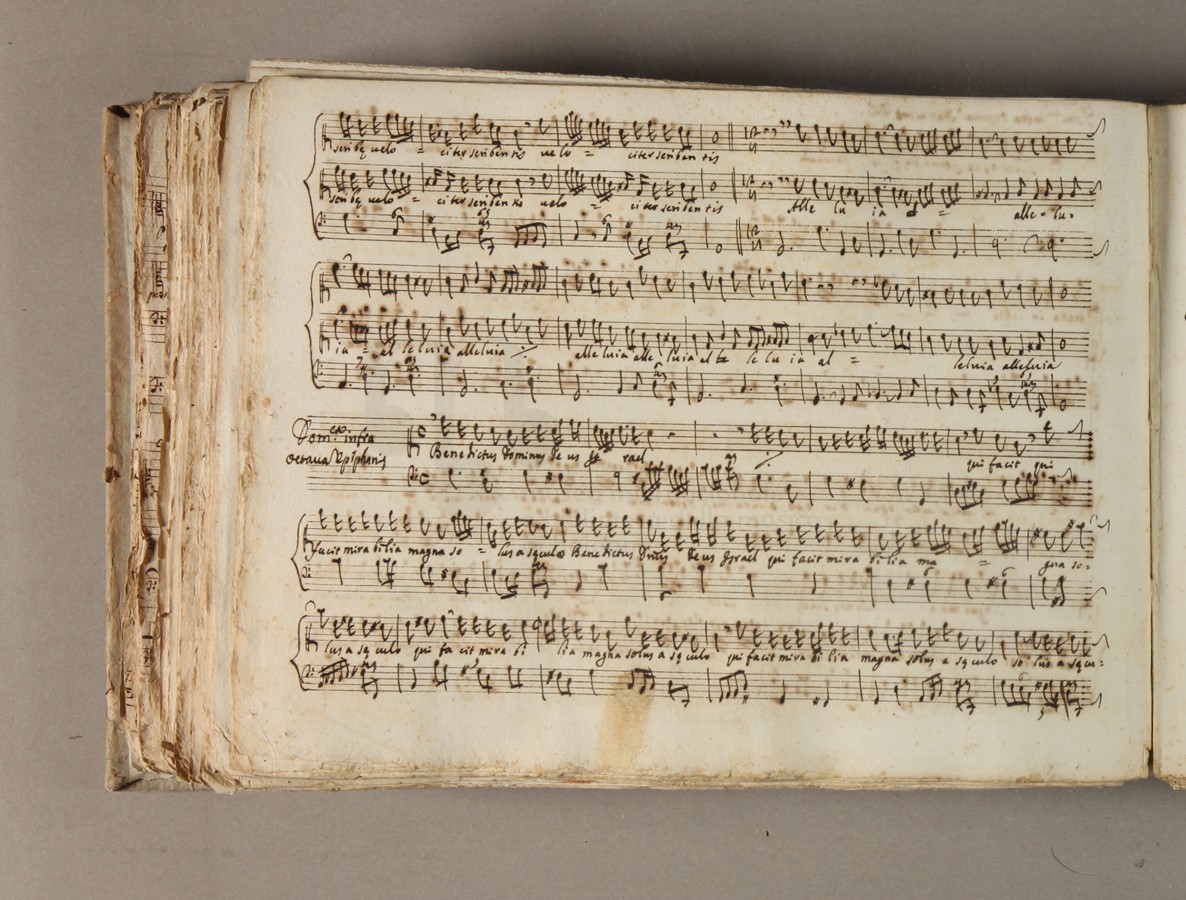 scribę velo = citer scribentis velo = citer scriben tis
scribę velo = citer scribentis velo = citer scribentis Alle lu ia = alle = lu =
ia = al leluia alleluia alleluia alle luia al le lu ia al = leluia alleluia
Dom.ca infra
octava Epiphanię
Benedictus Dominus de us Is rael qui facit qui
facit mira bi lia magna so = lus a sęculo Benedictus Dnus Deus Israel qui facit mira bi lia ma = gna so =
lus a sę culo qui fa cit mira bi lia magna solus a sę culo qui facit mira bi lia magna solus a sęculo so lus a sęcu =